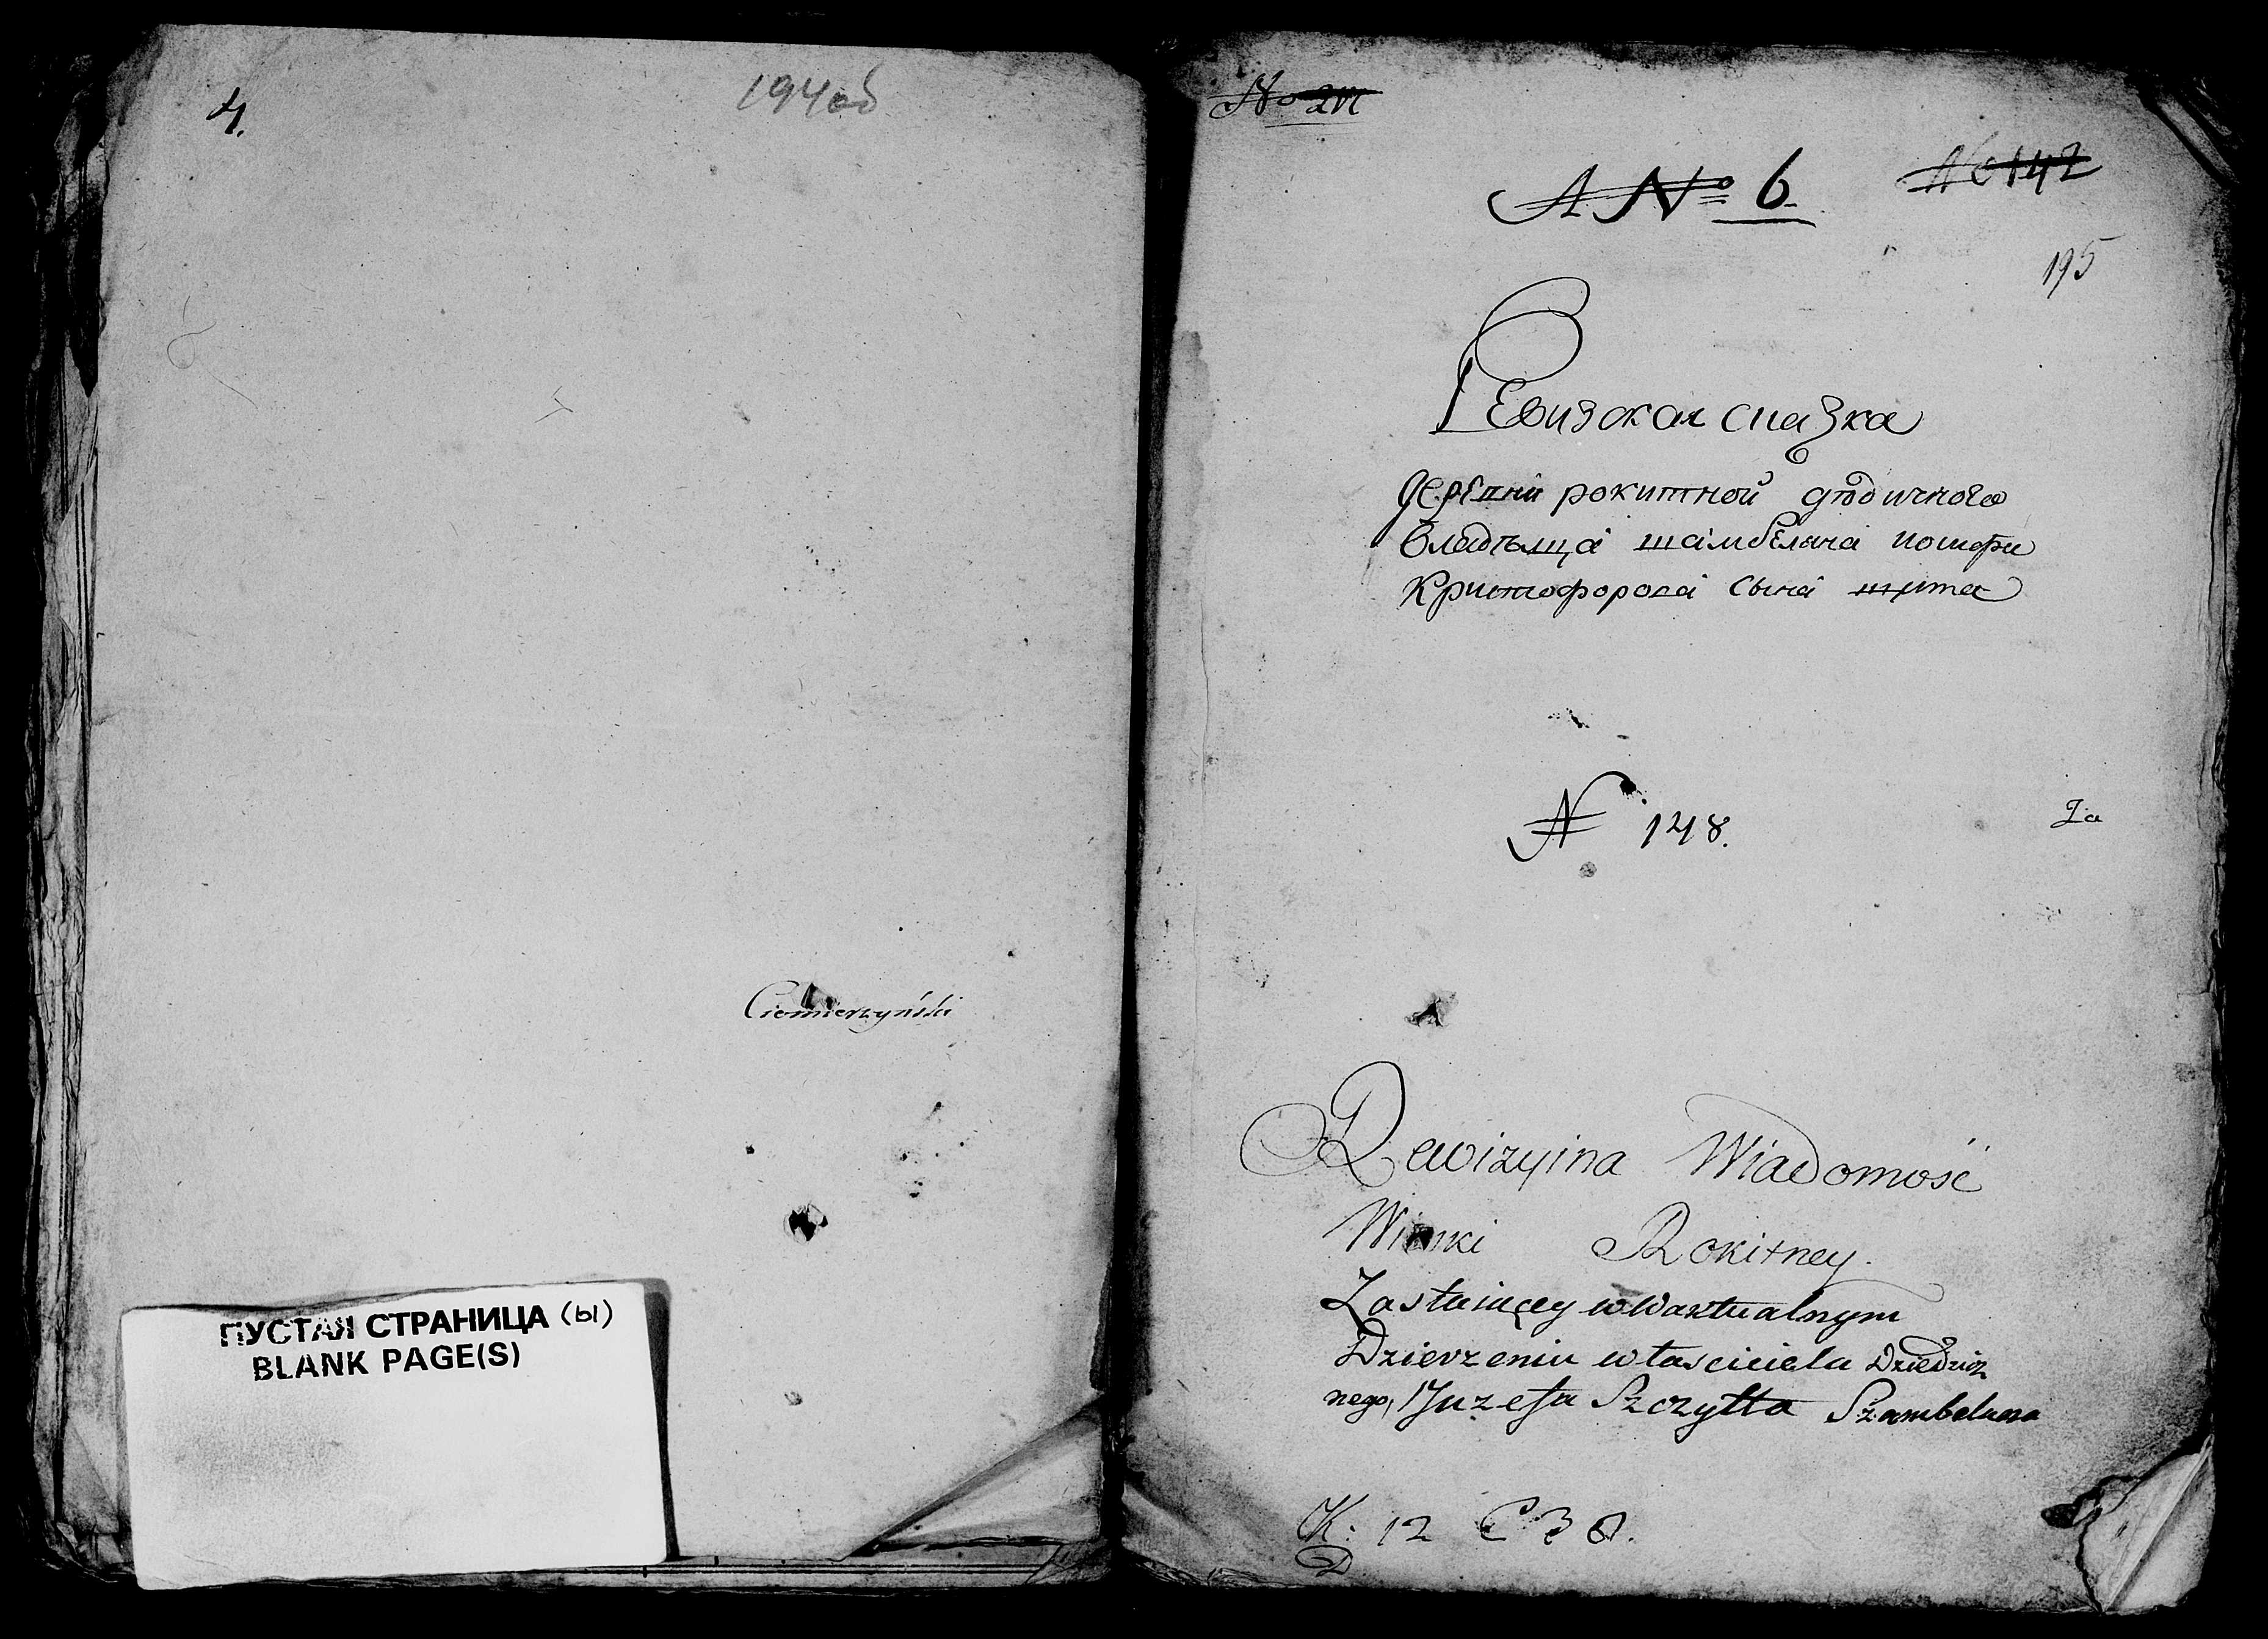 4.
194об
Ciemierzyński
ПУСТАЯ СТРАНИЦА (ы)
BLANK PAGE(S)
A No 6
No 147
195
Ревизская сказка
деревни рокитной дѣдичного
владѣлца шамбеляна иозефа
Криштофорова сына щита
N 148.
Rewizyina Wiadomość
Wioski Rokitney.
Zostaiącey w Waktualnym
Dzierzeniu własciciela Dziedzicz
nego, Juzefa Szczytta Szambelana
K. 12